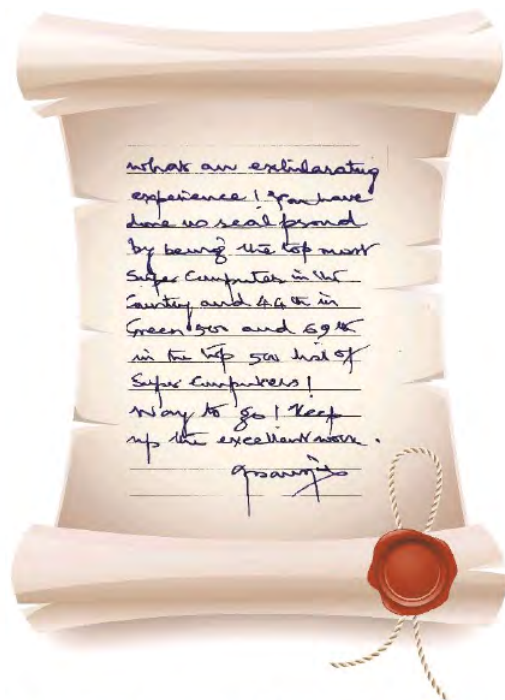 what an exhilarating
experience! you have
done us real proud
by being the top most
Super Computer in the
Country and 44th in
Green 500 and 69th
in the top 500 list of
Super Computers!
way to go! Keep
up the excellent work.